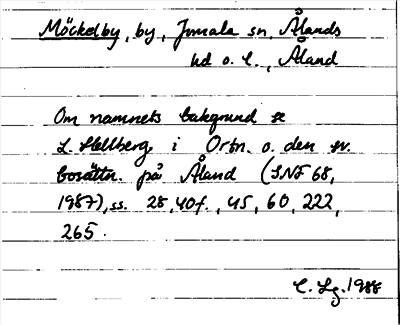 Möckelby, by, Jomala sn, Ålands
hd o. l., Åland
Om namnets bakgrund se
L. Hellberg i Ortn. o. den sv.
bosättn. på Åland (SNF 68,
1987), ss. 28, 40f., 45, 60, 222,
265.
C. Lg. 1988